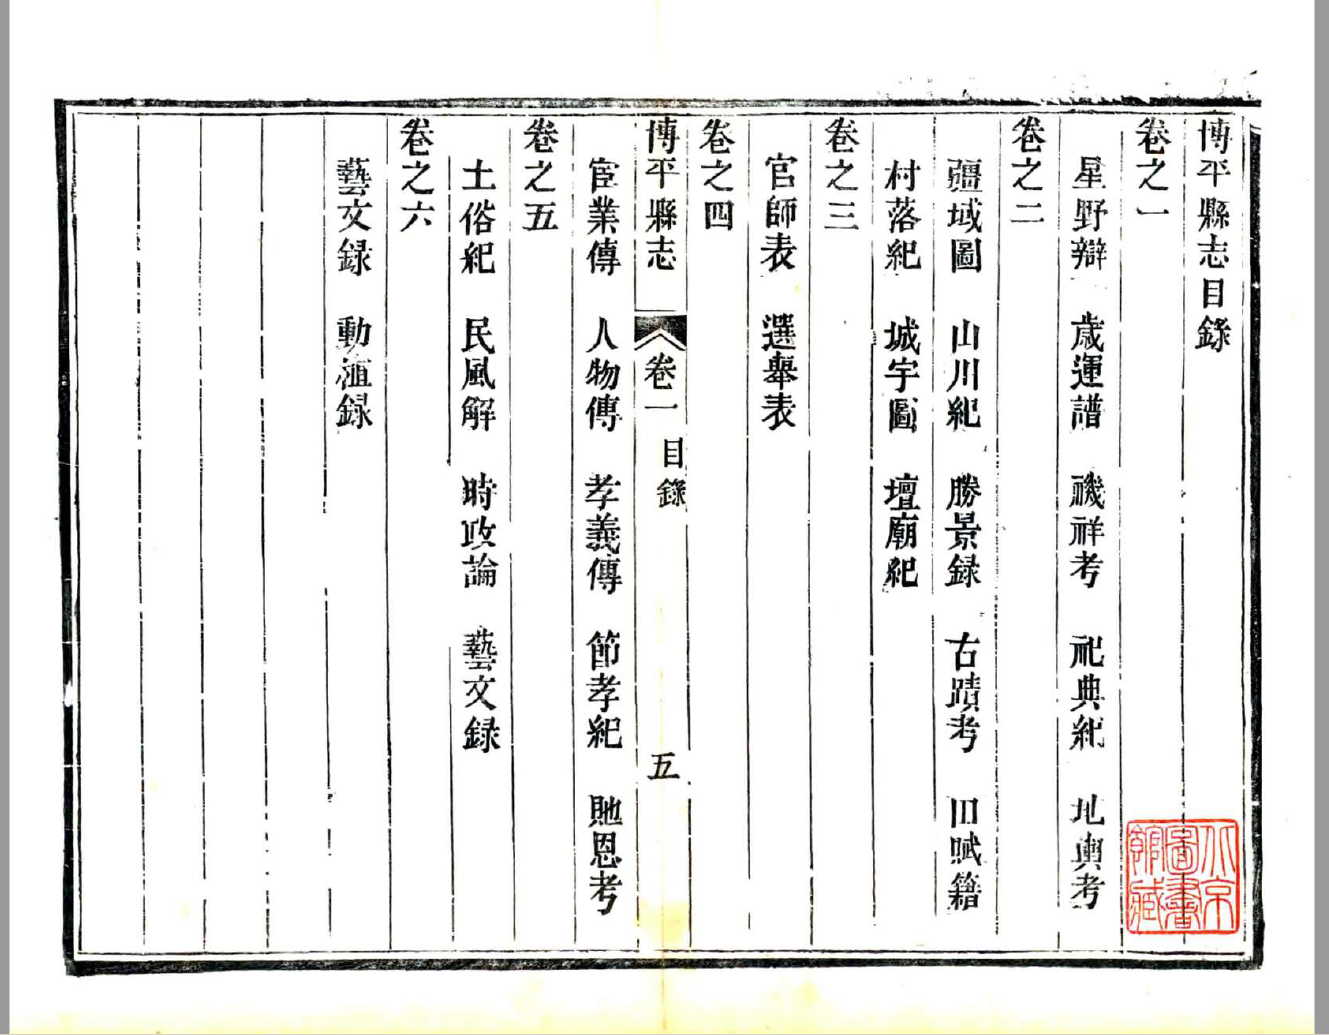 博平縣志目錄
卷之一
星野辯 歲運譜 禨祥考 祀典紀 地輿考
卷之二
疆域圖 山川紀 勝景録 古蹟考 田賦籍
村落紀 城宇圖 壇廟紀
卷之三
官師表 選舉表
卷之四
博平縣志 卷一 目錄 五
宦業傳 人物傳 孝義傳 節孝紀 貤恩考
卷之五
土俗紀 民風解 時政論 藝文録
卷之六
藝文録 動植録
北京
圖書
館藏